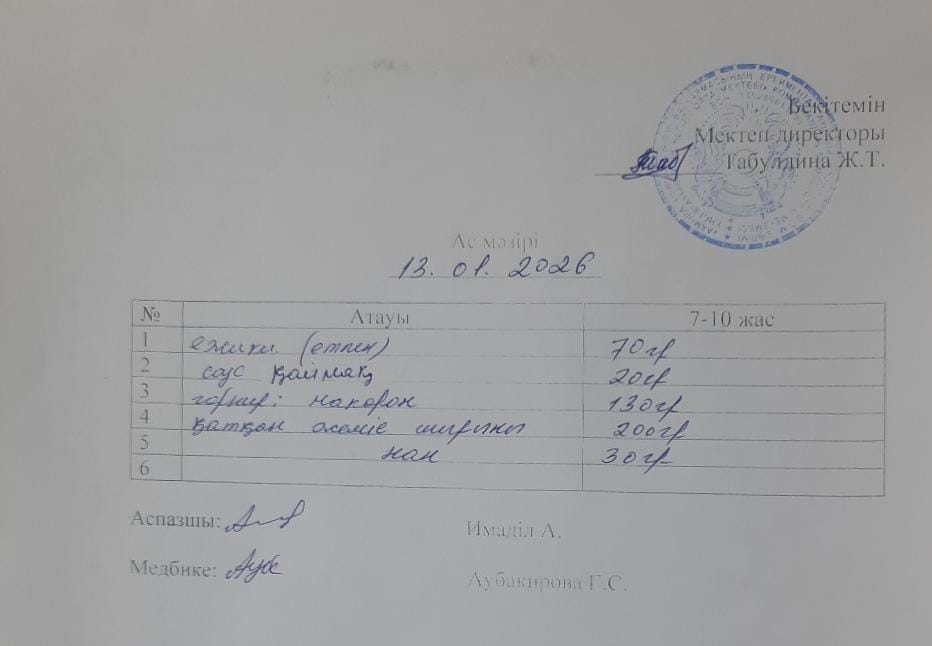 Бекітемін
Мектеп директоры
Габулдина Ж.Т.
Ас мәзірі
13. 01. 2026
№ Атауы 7-10 жас
1 ежики (етпен) 70гр
2 соус қаймақ 20гр
3 гарнир: макарон 130гр
4 қатқан жеміс шырыны 200гр
5 нан 30гр
6
Аспазшы: Имаділ А.
Медбике: Аубакирова Г.С.